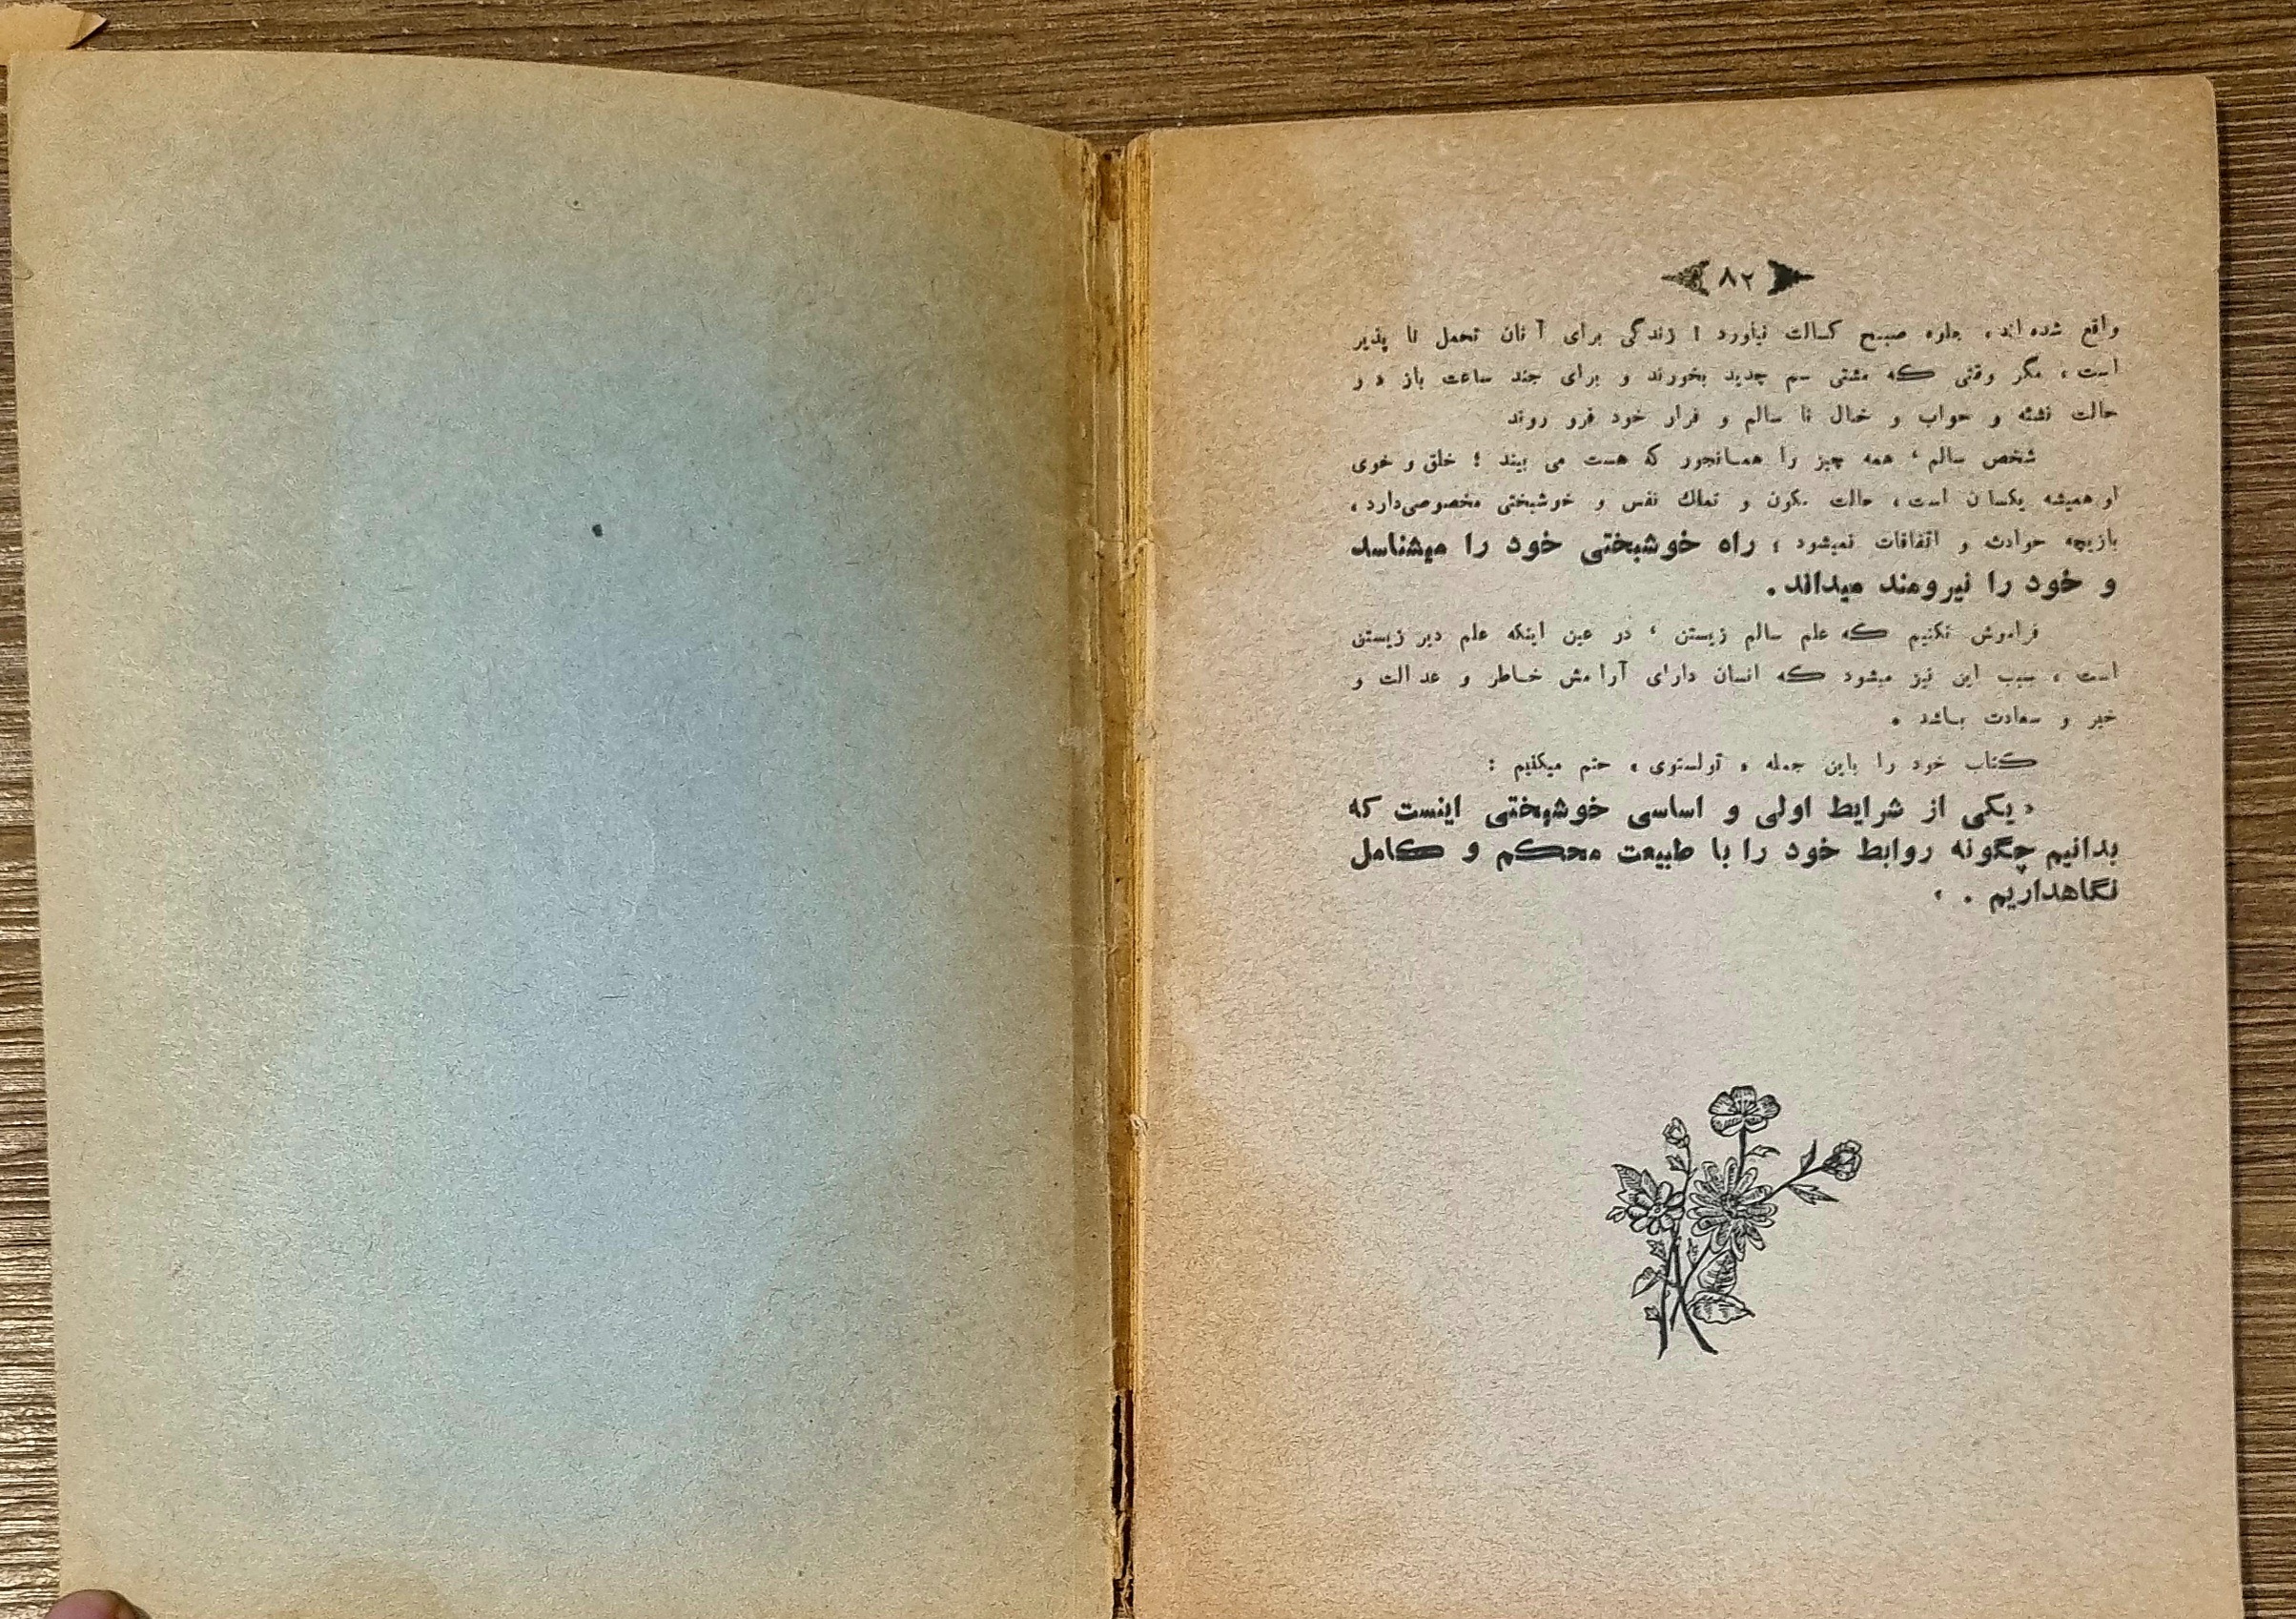 ۸۲
واقع شده اند، جلوه صبح کسالت نیاورد ! زندگی برای آنان تحمل نا پذیر
است، مگر وقتی که مشتی سم جدید بخورند و برای چند ساعت باز در
حالت نشئه و خواب و خیال نا سالم و فرار خود فرو روند
شخص سالم ، همه چیز را همانجور که هست می بیند ؛ خلق و خوی
او همیشه یکسان است، حالت سکون و تملك نفس و خوشبختی مخصوصی دارد،
بازیچه حوادث و اتفاقات نمیشود ؛ راه خوشبختی خود را میشناسد
و خود را نیرومند میداند.
فراموش نکنیم که علم سالم زیستن ، در عین اینکه علم دیر زیستن
است ، سبب این نیز میشود که انسان دارای آرامش خاطر و عدالت و
خیر و سعادت باشد .
کتاب خود را باین جمله « تولستوی » ختم میکنیم :
« یکی از شرایط اولی و اساسی خوشبختی اینست که
بدانیم چگونه روابط خود را با طبیعت محکم و کامل
نگاهداریم . »